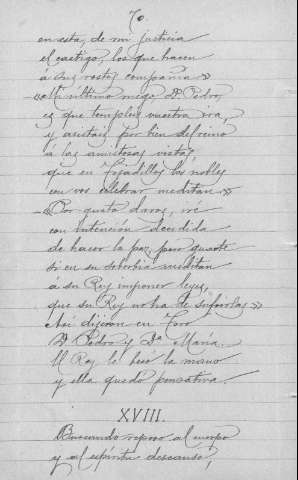 70.
en esta, de mi justicia
el castigo, los que hacen
á sus restos compañía»
«Mi último ruego Dn. Pedro,
es que templeis vuestra ira,
y asistais, por bien del reino
á las amistosas vistas
que en Tejadillos los nobles
con vos celebrar meditan.»
—«Por gusto daros, iré
con intención decidida
de hacer la paz, pero guarte
si en su soberbia meditan
á su Rey imponer leyes,
que su Rey no ha de sufrirlas»
Así dijeron en Toro
D. Pedro y Dª María.
El Rey le besó la mano
y ella quedó pensativa.
XVIII.
Buscando reposo al cuerpo
y al espíritu descanso,